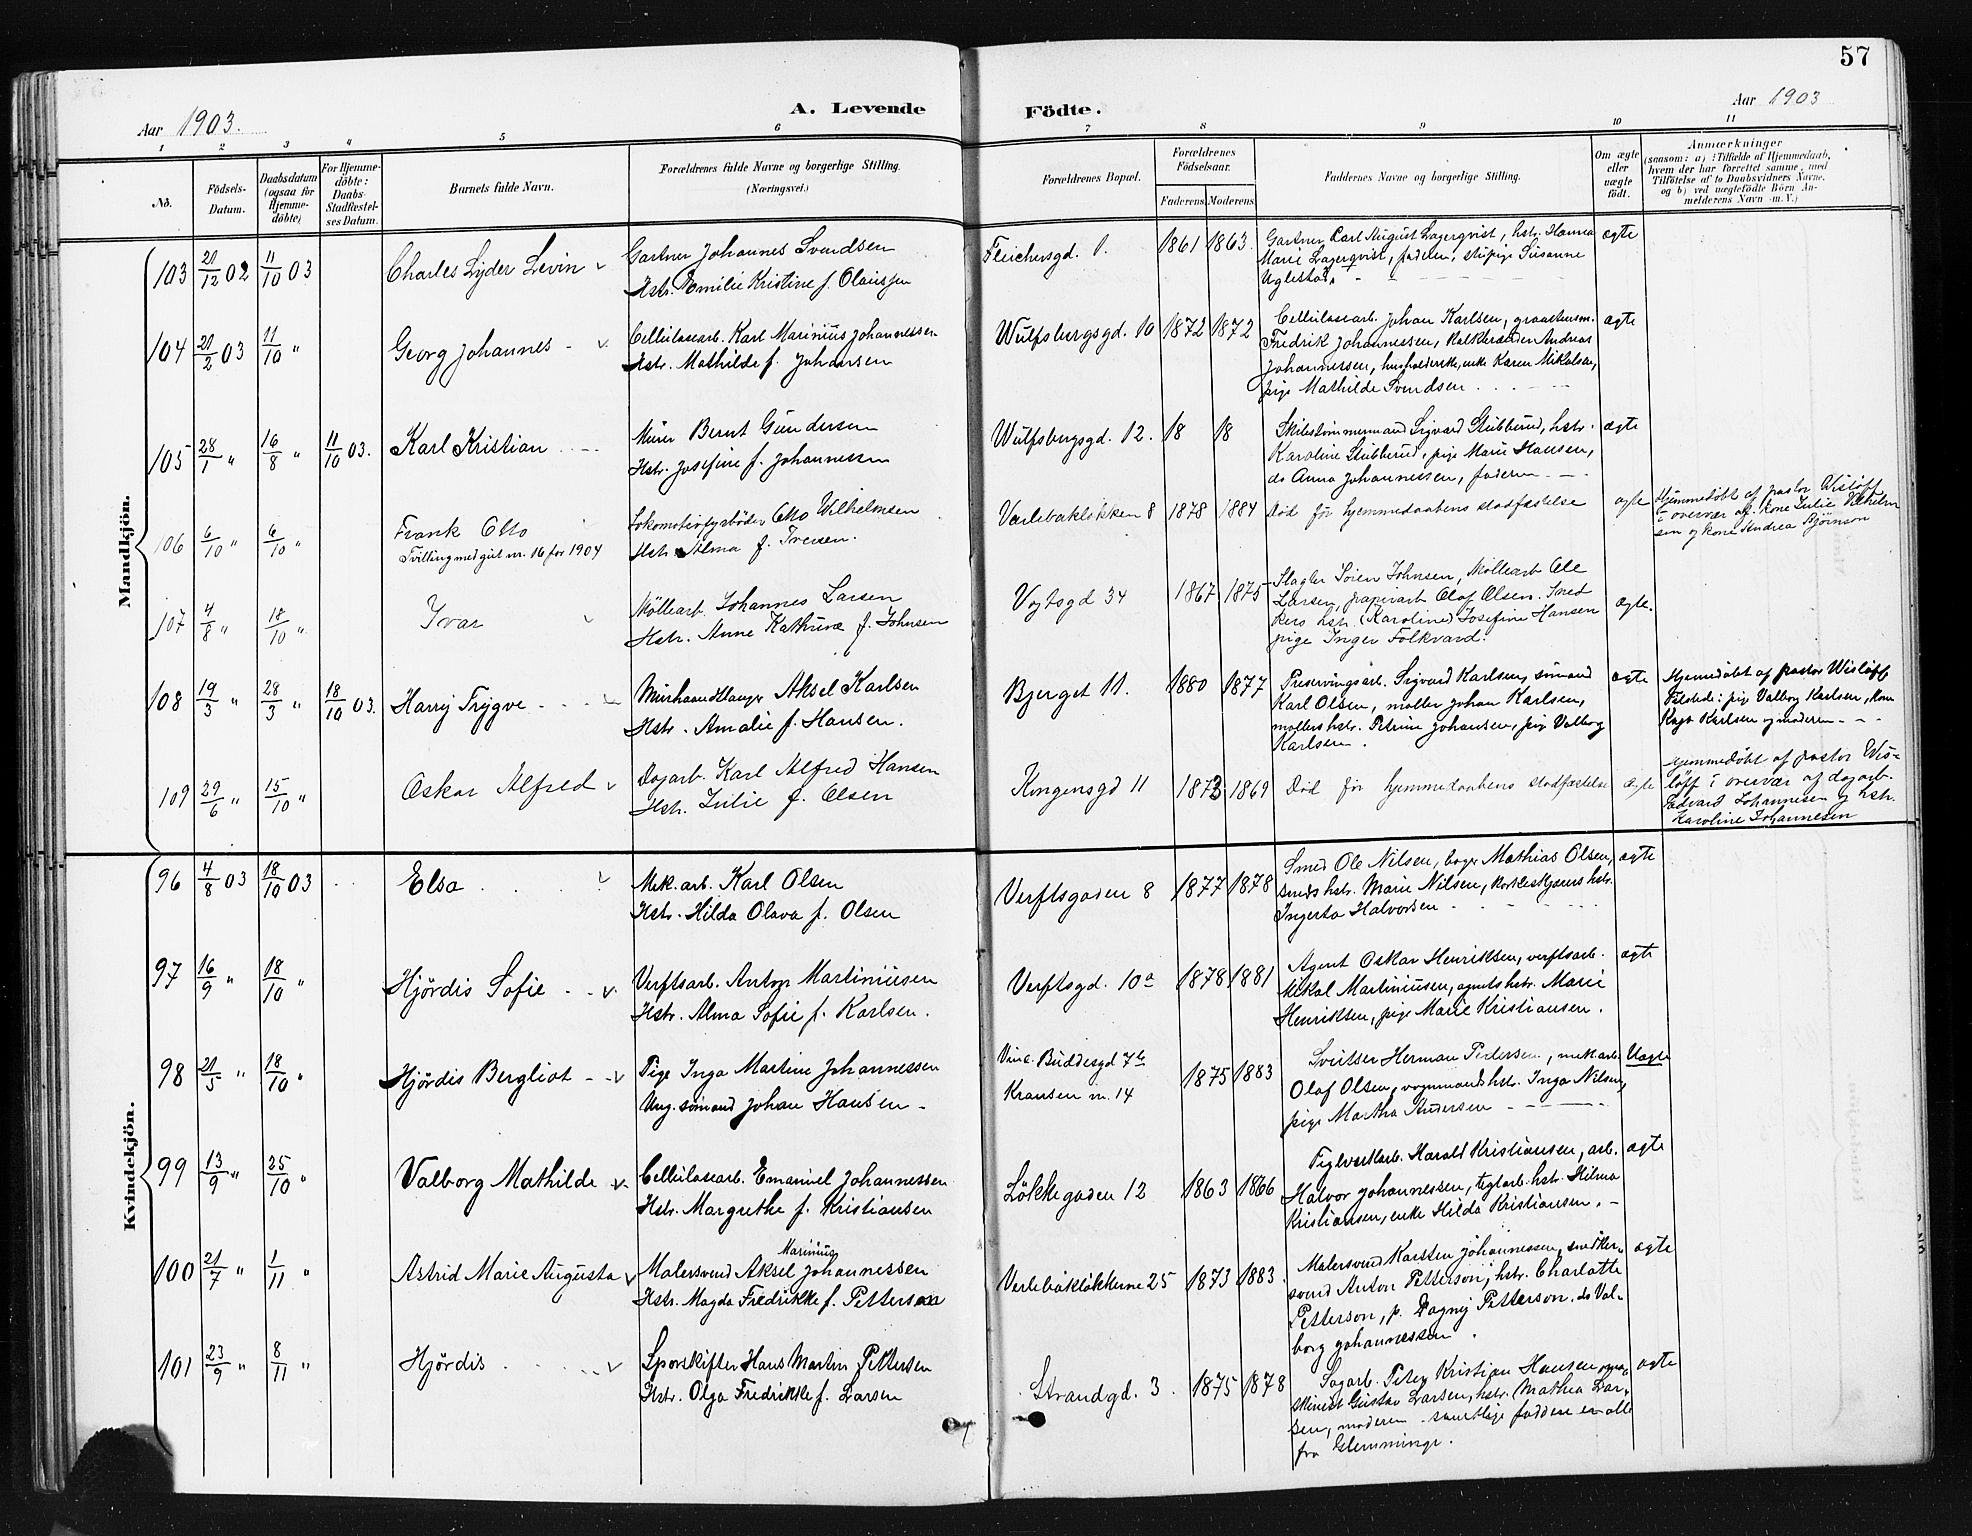 57
Aar 1903.
A. Levende Födte.
Aar 1903
1 2 3 4 5 6 7 8 9 10 11
No.
Födsels-
Datum.
Daabsdatum
(ogsaa for
Hjemme-
döbte)
For Hjemme-
döbte:
Daabs
Stadfæstel-
ses Datum.
Barnets fulde Navn.
Forældrenes fulde Navne og borgerlige Stilling.
(Næringsvei.)
Forældrenes Bopæl.
Forældrenes
Födselsaar.
Faderens Moderens
Faddernes Navne og borgerlige Stilling.
Om ægte
eller
uægte
födt.
Anmærkninger
(saasom: a) i Tilfælde af Hjemmedaab,
hvem der har forrettet samme, med
Tilföielse af to Daabsvidners Navne,
og b) ved uægtefödte Börn An-
melderens Navn m. V.)
Mandkjön.
103 21/12 02 11/10 03 Charles Lyder Levin
Gartner Johannes Svendsen
Hstr. Emilie Kristine f. Olaussen
Fleichersgd. 1. 1861 1863.
Gartner Carl August Lagerqvist, hstr. Hanna
Marie Lagerqvist, faderen, stuepige Susanne
Uglestad
ægte
104 21/2 03 11/10 " Georg Johannes
Cellulosearb. Karl Marinius Johannessen
Hstr. Mathilde f. Johansen
Wulfsbergsgd. 10 1872 1872
Cellulosearb. Johan Karlsen,
Fredrik Johannessen, Kalkbrænder Andreas
Johannessen, husholderske, enke Karen Mikalsen,
pige Mathilde Svendsen
ægte
105 28/1 " 16/8 " 11/10 03. Karl Kristian
Murer Bernt Gundersen
Hstr. Josefine f. Johannessen
Wulfsbergsgd. 12. 18 18
Skibstømmermand Sigvard Stubberud, hstr.
Karoline Stubberud, pige Marie Hansen,
do Anna Johannessen, faderen
ægte
106 6/10 " 6/10 " Frank Otto
Tvilling med girl nr. 16 for 1904
Lokomotivfyrbøder Otto Wilhelmsen
Hstr. Alma f. Iversen.
Varlebakløkken 8 1878 1884
Død før hjemmedaabens stadfæstelse
ægte
Hjemmedøbt af pastor Wisløff
i overvær af kone Julie Vilhelm
sen og kone Andrea Bjørnson
107 4/8 " 18/10 " Ivar
Møllearb. Johannes Larsen
Hstr. Anne Kathrine f. Johnsen
Vogtsgd 34 1867 1875
Slagter Søren Johnsen, Møllearb Ole
Larsen, papirarb Olaf Olsen. Sned
kers hstr. (Karoline) Josefine Hansen
pige Inger Folkvard.
ægte.
108 19/3 " 28/3 " 18/10 03. Harry Trygve
Murhaandlanger Aksel Karlsen
Hstr. Amalie f. Hansen.
Bjerget 11. 1880 1877
Preservingsarb. Sigvard Karlsen, sømand
Karl Olsen, møller Johan Karlsen,
møllers hstr. Petrine Johansen, pige Valborg
Karlsen.
ægte
Hjemmedøbt af pastor Wisløff
Tilstede: pige Valborg Karlsen, kone
Karlsen og moderen
109 29/6 " 15/10 " Oskar Alfred
Dagarb. Karl Alfred Hansen
Hstr. Julie f. Olsen
Kongensgd 11 1873 1869
Død før hjemmedaabens stadfæstelse
ægte
Hjemmedøbt af pastor Wis-
løff i overvær af dagarb.
Edvard Johannesen og hstr.
Karoline Johannesen
Kvindekjön.
96 4/8 03 18/10 03 Elsa
Mek. arb. Karl Olsen
Hstr. Hilda Olava f. Olsen
Verftsgaden 8 1877 1878
Smed Ole Nilsen, bager Mathias Olsen,
smeds hstr. Marie Nilsen, korkeskjærers hstr.
Ingerta Halvorsen
ægte
97 16/9 " 18/10 " Hjördis Sofie
Verftsarb. Anton Martiniusen
Hstr. Alma Sofie f. Karlsen.
Verftsgd. 10a 1878 1881
Agent Oskar Henriksen, verftsarb.
Mikal Martiniusen, agents hstr. Marie
Henriksen, pige Marie Kristiansen.
ægte
98 21/5 " 18/10 " Hjördis Bergliot
Pige Inga Martine Johannessen
Ung. sømand Johan Hansen
Vinc. Buddesgd 7b
Kransen nr. 14
1875 1883
Sveitser Herman Pedersen, mek arb
Olaf Olsen, vognmands hstr. Inga Nilsen,
pige Martha Andersen
Uægte
99 13/9 " 25/10 " Valborg Mathilde
Cellulosearb. Emanuel Johannessen
Hstr. Margrethe f. Kristiansen
Løkkegaden 12 1863 1866
Teglverkarb. Harald Kristiansen, arb.
Halvor Johannessen, teglarb. hstr. Hilma
Kristiansen, enke Hilda Kristiansen.
ægte
100 21/7 " 1/11 " Astrid Marie Augusta
Marinius
Malersvend Aksel Johannessen
Hstr. Magda Fredrikke f. Petterson
Varlebakløkkerne 25 1873 1883.
Malersvend Karsten Johannessen, snedker-
svend Anton Petterson, hstr. Charlotte
Petterson, p. Dagny Petterson, do Val-
borg Johannessen.
ægte
101 23/9 " 8/11 " Hjördis
Sporskifter Hans Martin Pettersen
Hstr. Olga Fredrikke f. Larsen
Strandgd. 3 1875 1878
Sagarb. Peter Kristian Hansen,
Gustav Larsen, hstr. Mathea Lar-
sen, moderen samtlige faddere er alle
fra Glemminge.
ægte